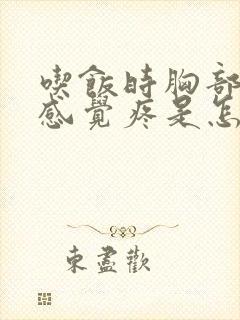 喫飯時胸部
感覺疼是怎
東盡歡